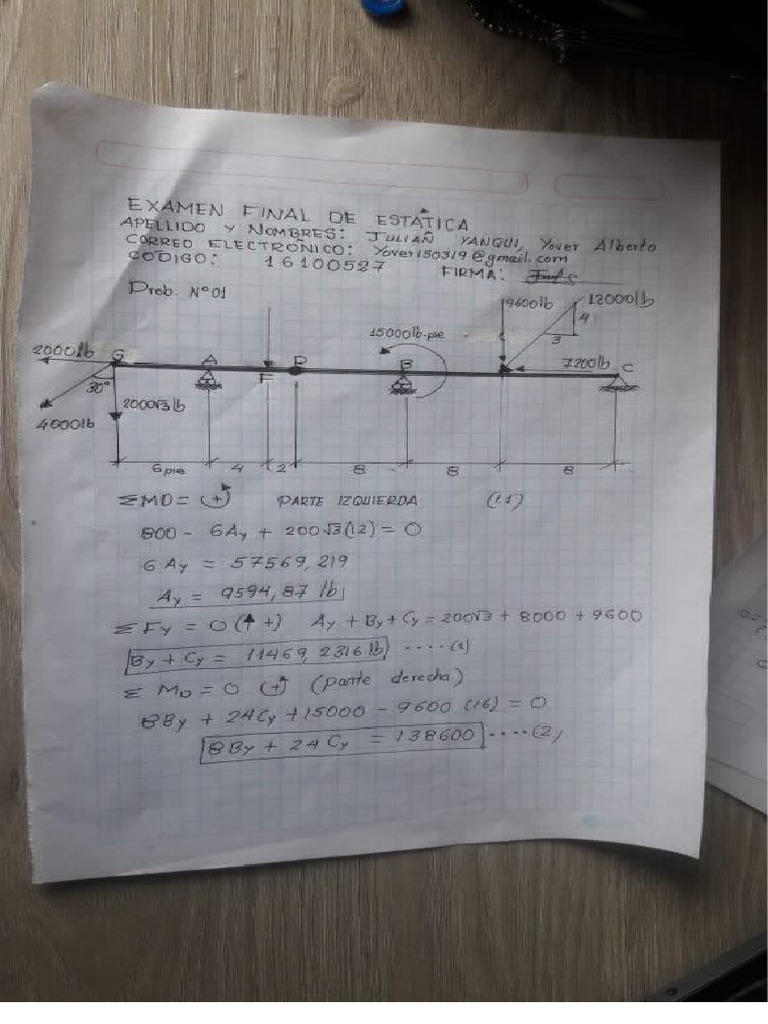 EXAMEN FINAL DE ESTÁTICA
APELLIDO Y NOMBRES: JULIAÑ YANQUI, Yover Alberto
CORREO ELECTROÑICO: Yover150319@gmail.com
CODIGO: 16100527 FIRMA:
Prob. N°01
9600lb 12000lb
4
3
15000lb-pie
2000lb G A F D B 7200lb C
30°
2000√3 lb
4000lb
6pie 4 2 8 8 8
ΣMD= (+) PARTE IZQUIERDA (1.1)
800 - 6Ay + 200√3(12) = 0
6Ay = 57569,219
Ay = 9594,87 lb
ΣFy = 0 (↑+) Ay + By + Cy = 200√3 + 8000 + 9600
By + Cy = 11469,2316 lb ....(1)
Σ MD = 0 (+) (parte derecha)
8By + 24Cy + 15000 - 9600 (16) = 0
8By + 24Cy = 138600 ....(2)